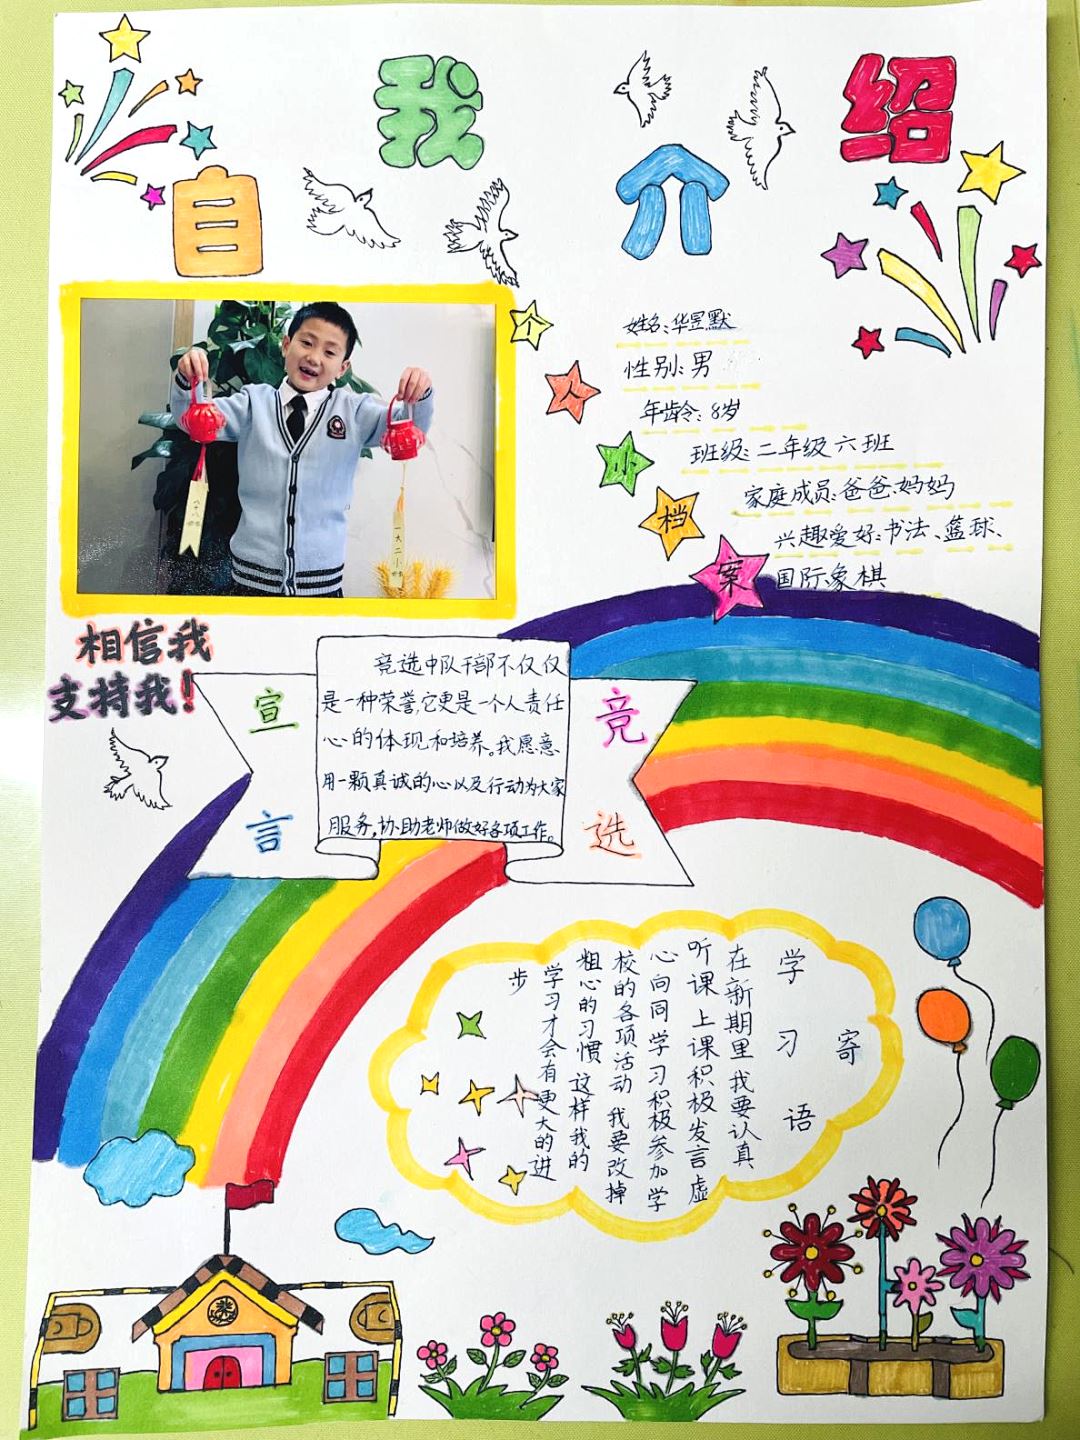 自我介绍
个人档案
姓名:华昱默
性别:男
年龄:8岁
班级:二年级六班
家庭成员:爸爸、妈妈
兴趣爱好:书法、篮球、
国际象棋
相信我
支持我!
竞选
宣言
竞选中队干部不仅仅
是一种荣誉,它更是一个人责任
心的体现和培养。我愿意
用一颗真诚的心以及行动为大家
服务,协助老师做好各项工作。
寄
学习语
在新期里我要认真
听课上课积极发言虚
心向同学习积极参加学
校的各项活动 我要改掉
粗心的习惯 这样我的
学习才会有更大的进
步